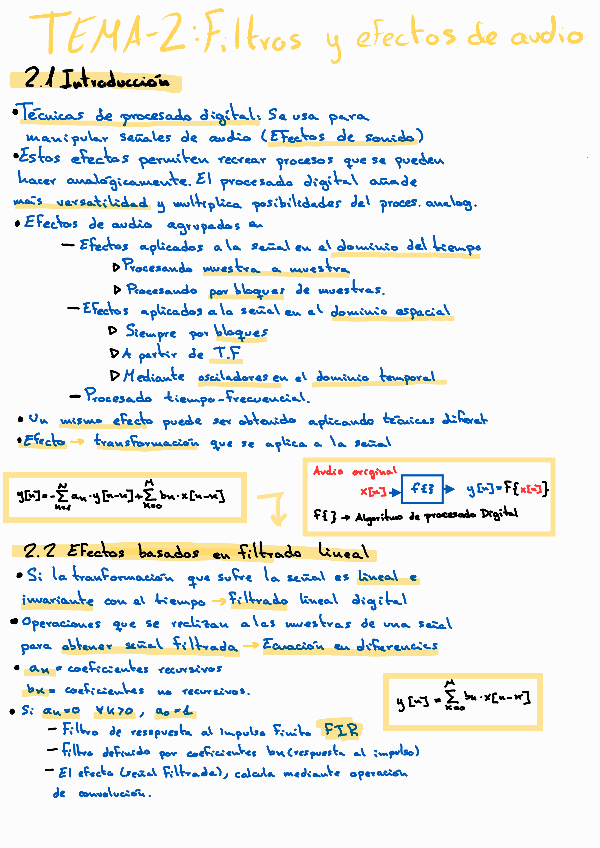 TEMA-2: Filtros y efectos de audio
2.1 Introducción
• Técnicas de procesado digital: Se usa para
manipular señales de audio (Efectos de sonido)
• Estos efectos permiten recrear procesos que se pueden
hacer analógicamente. El procesado digital añade
más versatilidad y multiplica posibilidades del proces. analog.
• Efectos de audio agrupados en
— Efectos aplicados a la señal en el dominio del tiempo
▷ Procesando muestra a muestra
▷ Procesando por bloques de muestras.
— Efectos aplicados a la señal en el dominio espacial
▷ Siempre por bloques
▷ A partir de T.F
▷ Mediante osciladores en el dominio temporal
— Procesado tiempo-frecuencial.
• Un mismo efecto puede ser obtenido aplicando técnicas diferet
• Efecto → transformación que se aplica a la señal
y[n]=-∑_{k=1}^{N} a_k·y[n-k]+∑_{k=0}^{M} b_k·x[n-k]
Audio original
x[n] → f{} → y[n]=F{x[n]}
f{} → Algoritmo de procesado Digital
2.2 Efectos basados en filtrado lineal
• Si la tranformación que sufre la señal es lineal e
invariante con el tiempo → filtrado lineal digital
• Operaciones que se realizan a las muestras de una señal
para obtener señal filtrada → Ecuación en diferencias
• a_k = coeficientes recursivos
b_k = coeficientes no recursivos.
y[n] = ∑_{k=0}^{M} b_k·x[n-k]
• Si a_k=0 ∀k>0, a_0=1
— Filtro de respuesta al Impulso Finito FIR
— Filtro definido por coeficientes b_k (respuesta al impulso)
— El efecto (señal filtrada), calcula mediante operación
de convolución.